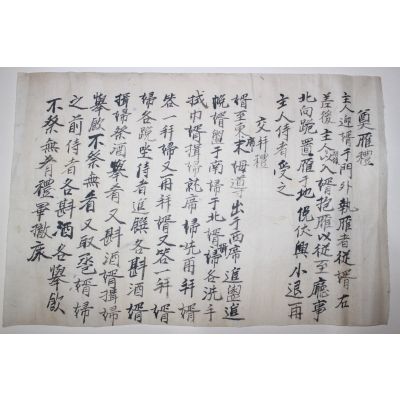 奠雁禮
主人迎婿于門外執雁者從婿右
差後主人以入婿抱雁以從至廳事
北向跪置雁于地俛伏興小退再
主人侍者受之
交拜禮
婿至東席姆導婦出于西席進盥進
帨婿盥于南婦于北婿婦各洗手
拭巾婿揖婦就席婦先再拜婿
答一拜婦又再拜婿又答一拜婿
婦各跪坐侍者進饌各斟酒婿
揖婦祭酒擧肴又斟酒婿揖婦
擧飮不祭無肴又取巹婿婦
之前侍者各斟酒各擧飮
不祭無肴禮畢撤床